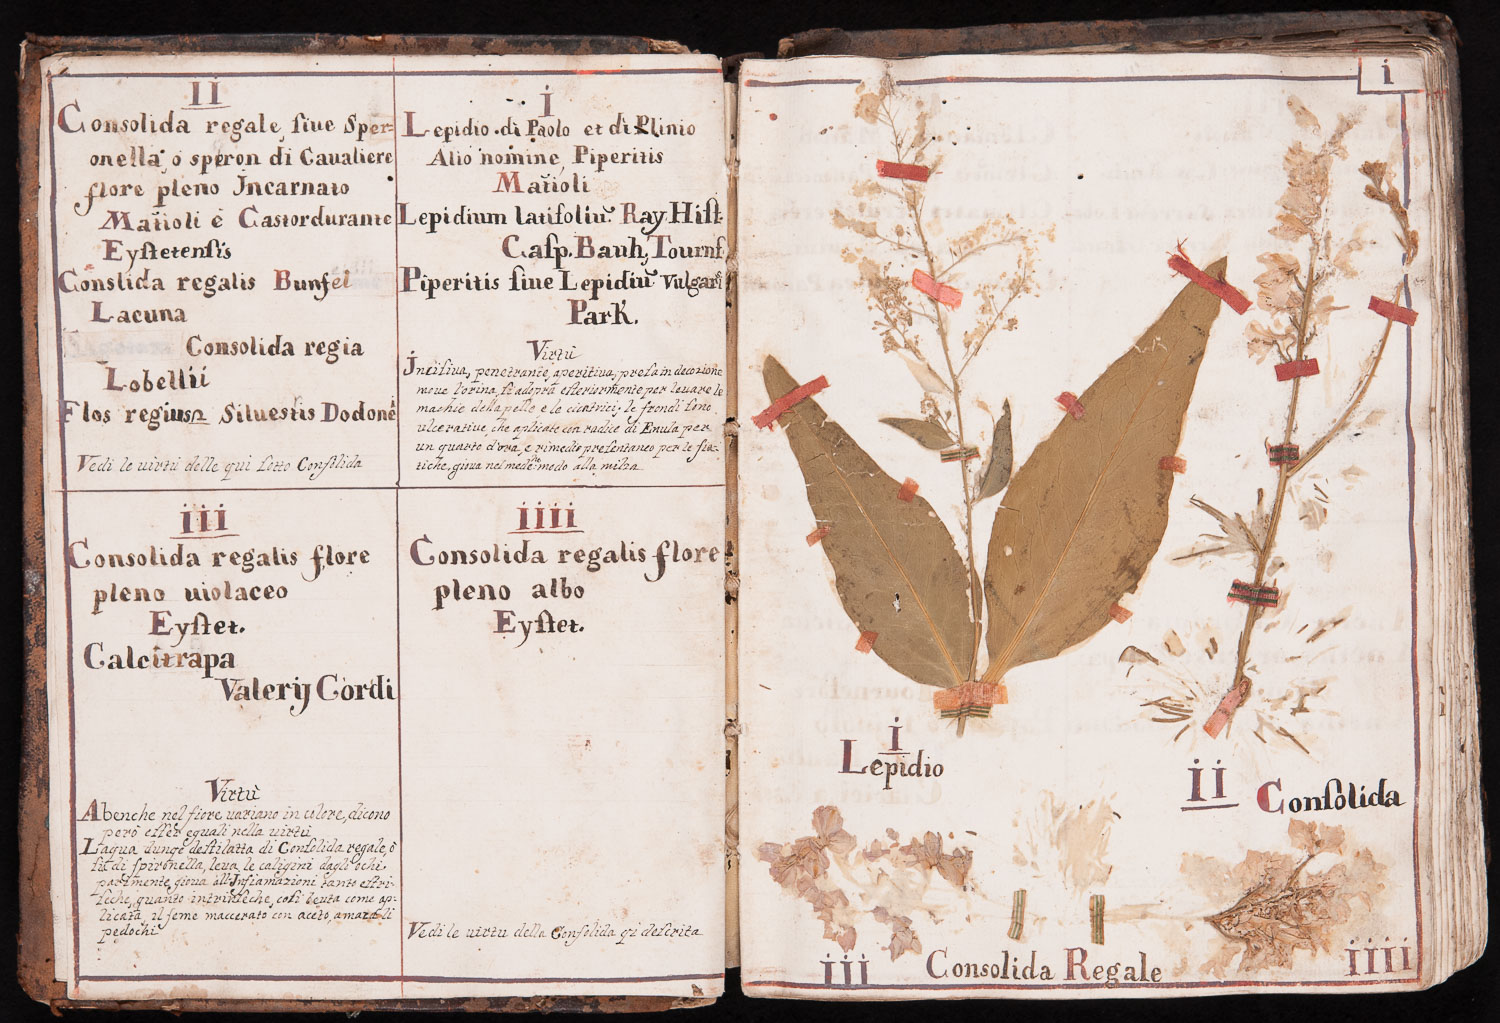 II
Consolida regale, siue Sper=
onella, ò speron di Caualiere
flore pleno Incarnato
Matioli è Castordurante
Eystetensis
Conslida regalis Bunfei
Lacuna
Consolida regia
Lobellii
Flos regius Siluestis Dodone
Vedi le uirtù delle qui sotto Consolida
i
Lepidio di Paolo et di Plinio
Alio nomine, Piperitis
Matioli
Lepidium latifoliũ Ray Hist.
Casp. Bauh, Tournf
Piperitis siue Lepidiũ Vulgaris
Park.
Virtù
Incisiua, penetrante, aperitiua, presa in decozione
moue l'orina, si adopra esteriormente per leuare le
machie della pelle e le cicatrici, le frondi sono
ulceratiue, che aplicate con radice di Enula per
un quarto d'ora, è rimedio presentaneo per le scia=
tiche, gioua nel mede:mo modo alla milza
iii
Consolida regalis flore
pleno uiolaceo
Eystet.
Calcitrapa
Valerij Cordi
Virtù
Abenche nel fiore uariano in colore, dicono
però esser eguali nella uirtù
L'aqua dunqe destilatta di Consolida regale, ò
sia di spironella, leua le caligini dagli ochi
parimente gioua all'Infiamazioni tanto estri=
seche, quanto intrinseche, cosi beuta come ap=
licata, il seme maccerato con aceto, amaza li
pedochi
iiii
Consolida regalis flore
pleno albo
Eystet.
Vedi le uirtu della Consolida qi descrita
i
i
Lepidio
ii
Consolida
iii
Consolida Regale
iiii